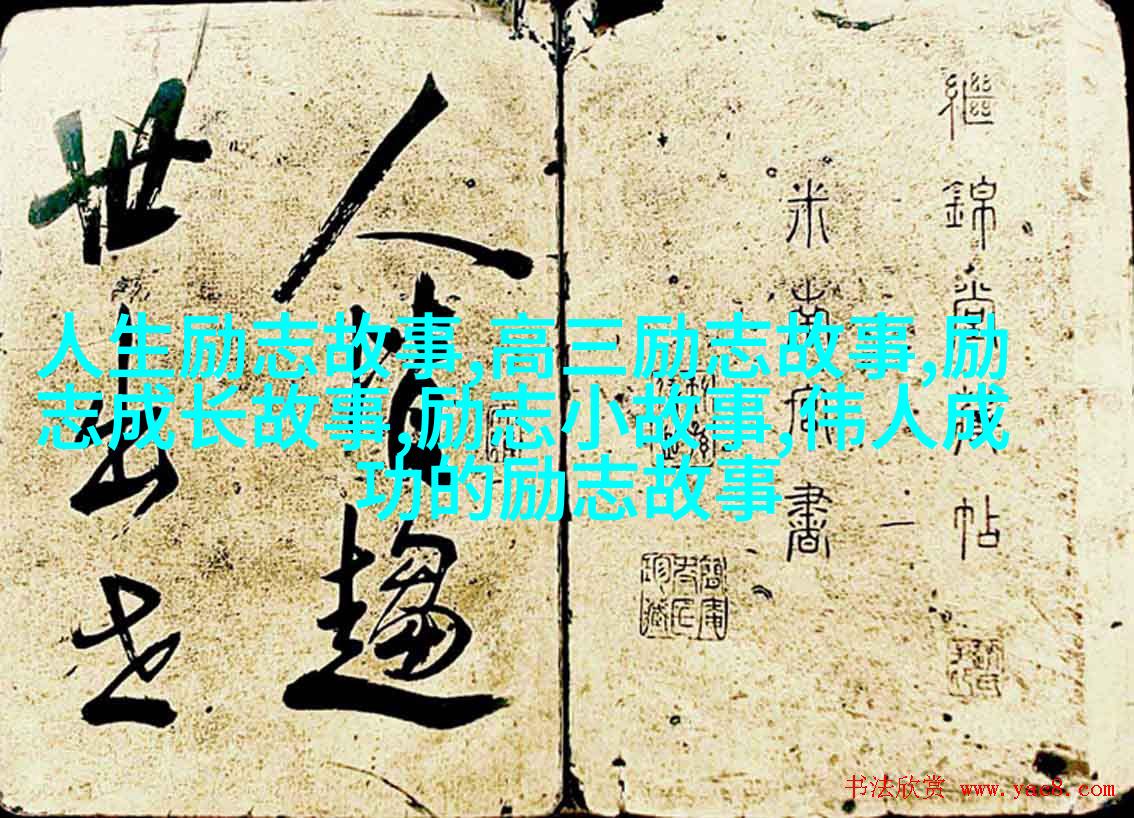 繼錦堂藏帖
米南宮書 一
人皆趨
世出世
人生励志故事,高三励志故事,励
志成长故事,励志小故事,伟人成
功的励志故事
书法欣赏 www.yac8.com